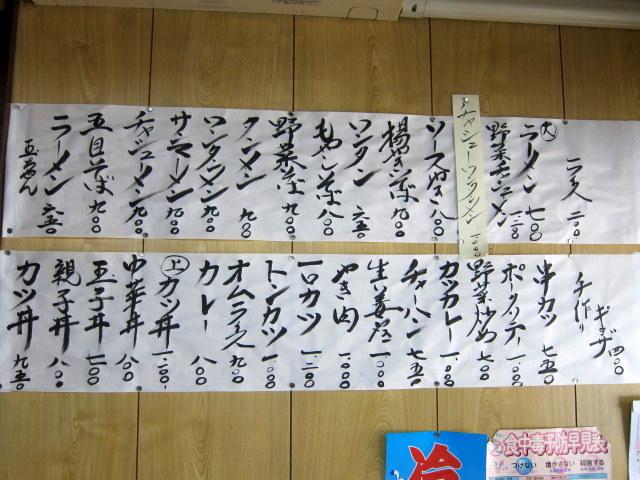 ライス 二〇〇
大ラーメン 七〇〇
野菜チャシューメン
チャシューワンタンメン
ソースやき 八〇〇
揚やきそば 九〇〇
ワンタン 六五〇
もやしそば 八〇〇
野菜そば 九〇〇
タンメン 九〇〇
ワンタンメン 九〇〇
サンマーメン 九〇〇
チャシューメン 九〇〇
五目そば 九〇〇
ラーメン 六五〇
玉ちゃん
手作り ギョーザ 四〇〇
串カツ 七五〇
ポークソテー 一.〇〇〇
野菜炒め 七〇〇
カツカレー 一.〇〇〇
チャーハン 七五〇
生姜焼 一.〇〇〇
やき肉 一.〇〇〇
一口カツ 一.二〇〇
トンカツ 一.〇〇〇
オムライス 九〇〇
カレー 八〇〇
上カツ丼 一.二〇〇
中華丼 八〇〇
玉子丼 七〇〇
親子丼 八〇〇
カツ丼 九五〇
冷
食中毒予防早見表
つけない 増やさない 殺菌する